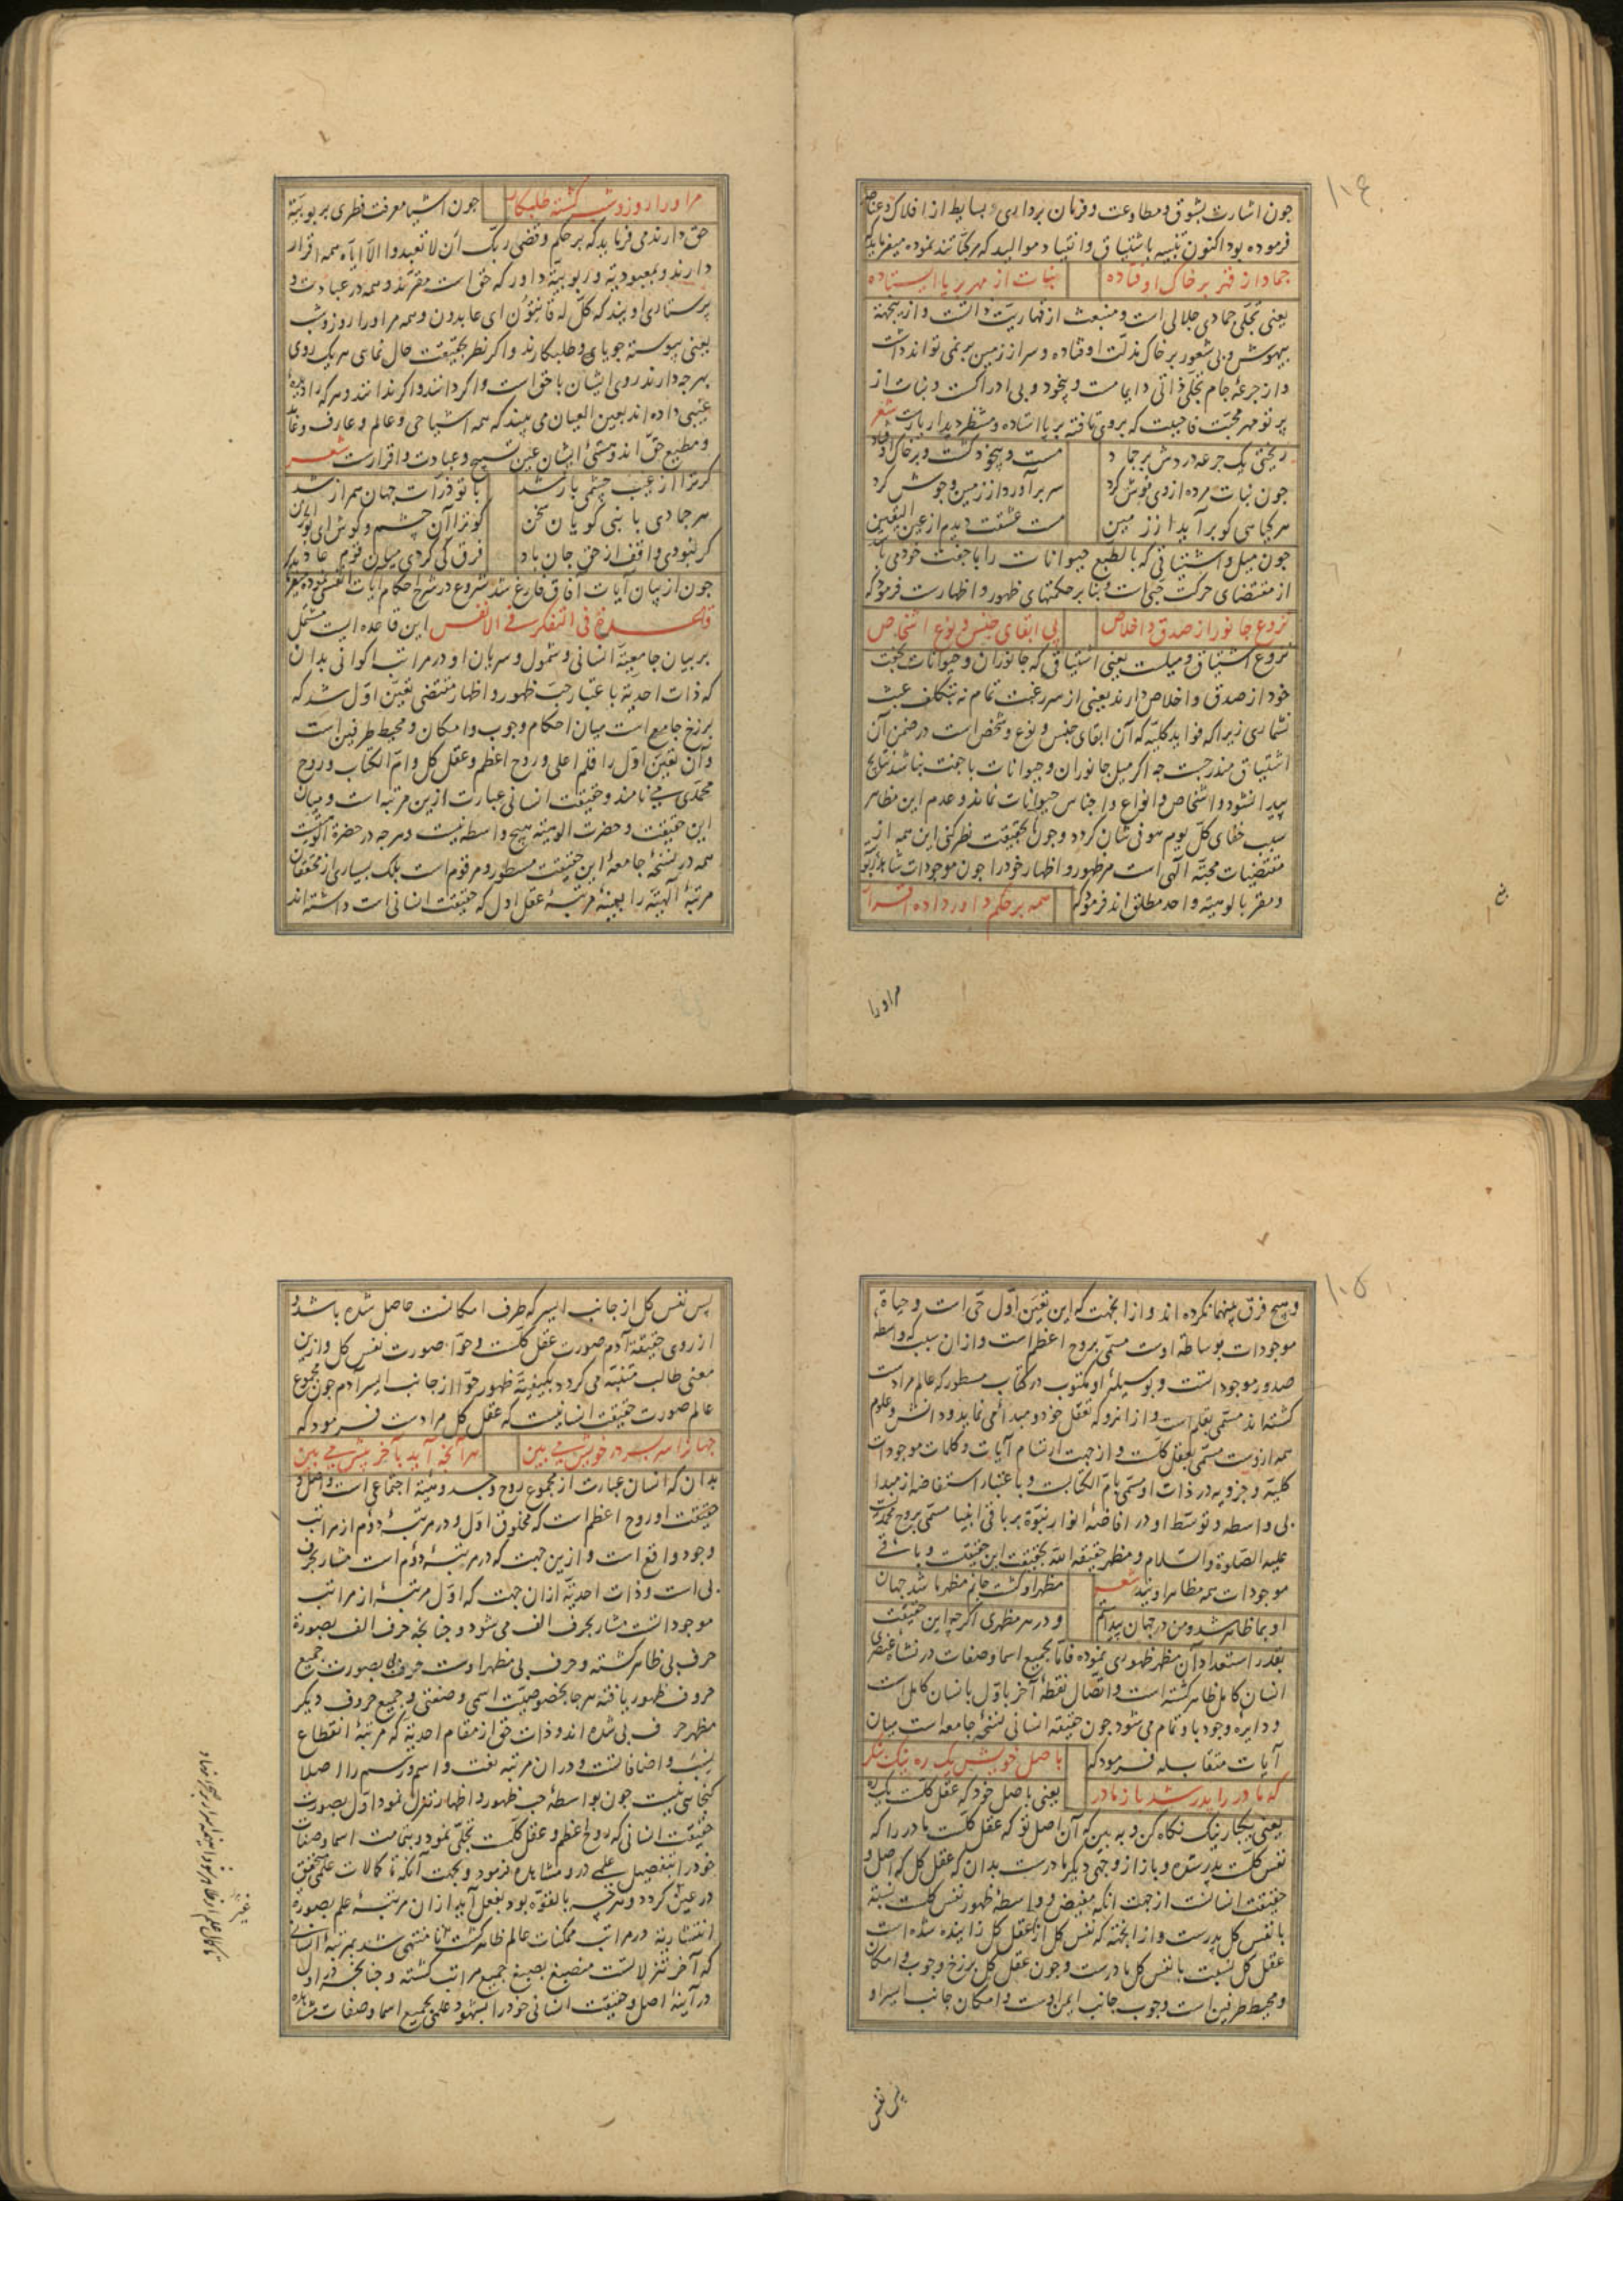 ۱۰۴
چون اشارت بشوق و مطاوعت و فرمان برداری و بسایط از افلاک و عناصر
فرموده بود اکنون تنبیه باشتیاق و انقیاد موالید که مرکباتند نموده میفرماید که
جماد از قهر بر خاک اوفتاده نبات از مهر بر پا ایستاده
یعنی تجلّی جمادی جلالی است و منبعث از قهاریت ذاتست و از ینجهة
بیهوش و بی شعور بر خاک مذلت اوفتاده و سر از زمین بر نمی تواند داشت
و از جرعهٔ جام تجلّی ذاتی دایما مست و بیخود و بی ادراکست و نبات از
پرتو مهر محبّت فاحببت که بر وی تافته بر پا استاده و منتظر دیدار یارست شعر
ریختی یک جرعه دردش بر جماد مست و بیخود گشت و بر خاک اوفتاد
چون نبات مرده از وی نوش کرد سر بر آورد از زمین و جوش کرد
هر گیاهی کو بر آید از زمین مست عشقت دیدم از عین الیقین
چون میل و اشتیاقی که بالطبع حیوانات را با جفت خود می باشد
از مقتضای حرکت حبّی است و بنا بر حکمتهای ظهور و اظهارست فرمود که
نزوع جانور از صدق و اخلاص پی ابقای جنس و نوع اشخاص
نزوع اشتیاق و میلست یعنی اشتیاقی که جانوران و حیوانات بجفت
خود از صدق و اخلاص دارند یعنی از سر رغبت تمام نه بتکلف عبث
نشماری زیرا که فواید کلیّه که آن ابقای جنس و نوع و شخص است در ضمن آن
اشتیاق مندرجست چه اگر میل جانوران و حیوانات با جفت نباشد نتایج
پیدا نشود و اشخاص و انواع و اجناس حیوانات نماند و عدم این مظاهر
سبب خفای کلّ یوم هو فی شان گردد و چون بحقیقت نظر کنی این همه از
مقتضیات محبّة آلهی است مر ظهور و اظهار خود را چون موجودات
و مقر بالوهیة واحد مطلق اند فرمود که همه بر حکم داور داده اقرار
مراورا
مراورا روز و شب گشته طلبکار چون اشیا معرفت فطری بربوبیّة
حق دارند می فرماید که بر حکم و قضی ربّک ان لا تعبدوا الّا ایّاه همه اقرار
دارند و بمعبودیة و ربوبیّة داور که حق است مقرّند و همه در عبادت و
پرستاری اویند که کلّ له قانتون ای عابدون و همه مراورا روز و شب
یعنی پیوسته جویای و طلبکارند و اگر نظر بحقیقت حال نمایی هر یک روی
بهرچه دارند روی ایشان با حق است و اگر دانند و اگر ندانند و هرکه را دیدهٔ
غیبی داده اند بعین العیان می بیند که همه اشیا حی و عالم و عارف و عابد
و مطیع حق اند و هستیٔ ایشان عین تسبیح و عبادت و اقرارست شعر
گر ترا از غیب چشمی باز شد با تو ذرّات جهان همراز شد
هر جمادی با نبی گویان سخن کو ترا آن چشم و گوش ای بو الحسن
گر نبودی واقف از حق جان باد فرق کی کردی میان قوم عاد
چون از بیان آیات آفاق فارغ شد شروع در شرح احکام آیات انفس نموده میفرماید
قاعدة فی التفکر فی الانفس این قاعده ایست مشتمل
بر بیان جامعیّة انسانی و شمول و سریان او در مراتب اکوانی بدان
که ذات احدیّة باعتبار حبّ ظهور و اظهار مقتضی تعیّن اوّل شد که
برزخ جامع است میان احکام وجوب و امکان و محیط طرفین است
و آن تعیّن اوّل را قلم اعلی و روح اعظم و عقل کل و امّ الکتاب و روح
محمّدی می نامند و حقیقت انسانی عبارت ازین مرتبه است و میان
این حقیقت و حضرت الوهیّة هیچ واسطه نیست و هرچه در حضرة الوهیّت
همه در نسخهٔ جامعهٔ این حقیقت مسطور و مرقوم است بلک بسیاری از محققان
مرتبهٔ الهیّة را بعینه مرتبهٔ عقل اول که حقیقت انسانی است داشته اند
۱۰۵
و هیچ فرق بینهما نکرده اند و از انجهت که این تعیّن اوّل حی است و حیاة
موجودات بوساطة اوست مسمّی بروح اعظم است و از ان سبب که واسطهٔ
صدور موجوداتست و بوسیلهٔ او مکتوب در کتاب مسطور که عالم مرادست
گشته اند مسمّی بقلم است و از انرو که تعقل خود و مبدا می نماید و دانش و علوم
همه از وست مسمّی بعقل کلست و از جهت ارتسام آیات و کلمات موجودات
کلیّة و جزویه در ذات او مسمّی بامّ الکتابست و باعتبار استفاضه از مبدا
بی واسطه و توسّط او در افاضهٔ انوار نبوّة بر باقی انبیا مسمّی بروح محمدیست
علیه الصّلوة والسّلام و مظهر حقیقة الله بحقیقت این حقیقت و باقی
موجودات همه مظاهر اویند شعر مظهر او گشت جانم مظهر ما شد جهان
او بما ظاهر شد و من در جهان پیدا شدم و در هر مظهری اگرچه این حقیقت
بقدر استعداد آن مظهر ظهوری نموده فامّا بجمیع اسما و صفات در نشاهٔ عنصری
انسان کامل ظاهر گشته است و اتّصال نقطهٔ آخر باوّل بانسان کامل است
و دایرهٔ وجود باو تمام می شود چون حقیقة انسانی نسخهٔ جامعه است بیان
آیات متقابله فرمود که باصل خویش یک ره نیک بنگر
که مادر را پدر شد باز مادر یعنی باصل خود که عقل کلست یک ره
یعنی یکبار نیک نگاه کن و به بین که آن اصل تو که عقل کلست مادر را که
نفس کلست پدر شده و باز از وجهی دیگر مادرست بدان که عقل کل که اصل و
حقیقت انسانست از جهت آنکه مفیض و واسطهٔ ظهور نفس کلست نسبة
با نفس کل پدرست و از انجهة که نفس کل از عقل کل زاییده شده است
عقل کل نسبت با نفس کل مادرست و چون عقل کل برزخ وجوب و امکان
و محیط طرفین است وجوب جانب ایمن اوست و امکان جانب ایسر او
پس نفس
پس نفس کل از جانب ایسر که طرف امکانست حاصل شده باشد و
از روی حقیقة آدم صورت عقل کلست و حوّا صورت نفس کل و ازین
معنی طالب متنبّه می گردد بکیفیّة ظهور حوّا از جانب ایسر آدم چون مجموع
عالم صورت حقیقت انسانیست که عقل کل مرادست فرمود که
جهان را سر بسر در خویش می بین هر آنچه آید بآخر پیش می بین
بدان که انسان عبارت از مجموع روح و جسد و هیئة اجتماعی است و اصل و
حقیقت او روح اعظم است که مخلوق اوّل و در مرتبهٔ دوم از مراتب
وجود واقع است و ازین جهت که در مرتبهٔ دوّم است مشار بحرف
بی است و ذات احدیّة از ان جهت که اوّل مرتبهٔ از مراتب
موجوداتست مشار بحرف الف می شود و چنانچه حرف الف بصورة
حرف بی ظاهر گشته و حرف بی مظهر اوست حرف بی بصورت جمیع
حروف ظهور یافته هرجا بخصوصیّت اسمی و صفتی و جمیع حروف دیگر
مظهر حرف بی شده اند و ذات حق از مقام احدیّة که مرتبهٔ انقطاع
نسب و اضافاتست و در ان مرتبه نعت و اسم و رسم را اصلا
گنجایی نیست چون بواسطهٔ حب ظهور و اظهار تنزل نمود اوّل بصورت
حقیقت انسانی که روح اعظم و عقل کلست تجلّی نمود و بتمامت اسما و صفات
خود را بتفصیل علمی در و مشاهده فرمود و بجهت آنکه تا کمالات علمی محقق
در عین گردد و هرچه بالقوّه بود بفعل آید از ان مرتبهٔ علم بصورة
انتشاریه در مراتب ممکنات عالم ظاهر گشت تا منتهی شد بمرتبهٔ انسانی
که آخر تنزلاتست منصبغ بصبغ جمیع مراتب گشته و چنانچه در اول
در آینهٔ اصل و حقیقت انسانی خود را بشهود علمی بجمیع اسما و صفات مشاهده